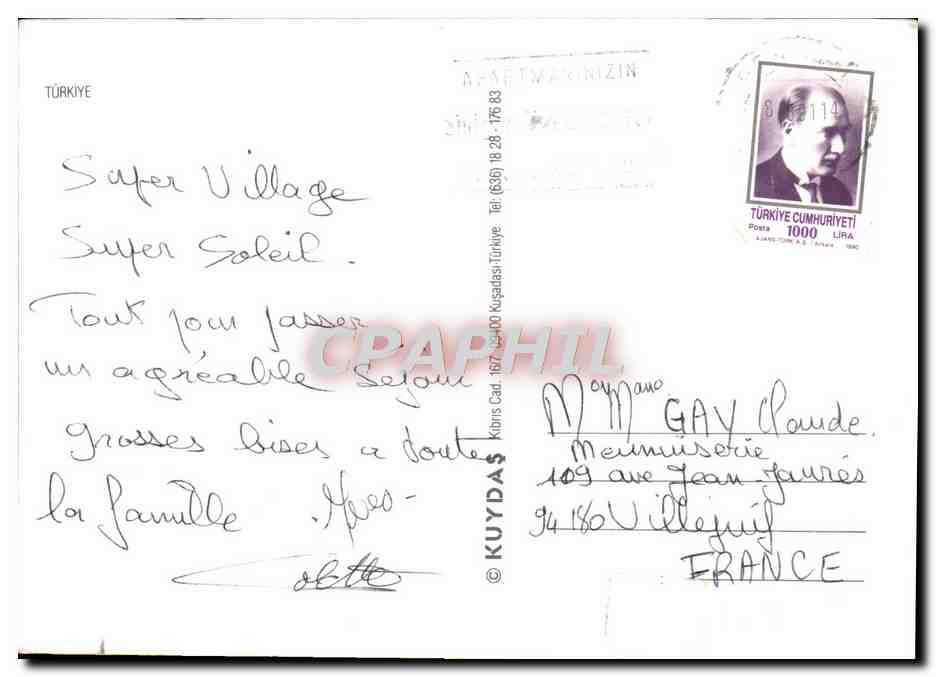 TÜRKİYE
Super Village
Super Soleil.
Tout pour passer
un agréable Séjour
grosses bises a toute
la famille Yves -
Colette
© KUYDAŞ Kıbrıs Cad. 16/7 09400 Kuşadası-Türkiye Tel: (636) 18 28 - 176 83
APARTMANINIZIN
TÜRKİYE CUMHURİYETİ
Posta 1000 LİRA
AJANS-TÜRK A.Ş. / Ankara 1990
CPAPHIL
GAY Claude.
Menuiserie
109 ave Jean-Jaurès
94180 Villejuif
FRANCE